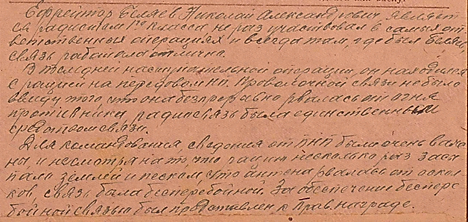 Ефрейтор Беляев Николай Александрович являет-
ся радистом 1го класса не раз участвовал в самых от
ветственных операциях и всегда там, где был Беляев
связь работала отлично.
В наступательной операции, он находился
с рацией на передовом НП. Проволочной связи не было
ввиду того что она безпрерывно рвалась от огня
противника, радиосвязь была единственным
средством связи.
Для командования сведения от ПНП были очень важ-
ны и несмотря на то, что рацию несколько раз засы
пали землей и песком, что антена рвалась от оскол
ков, связь была бесперебойной. За обеспечение беспере
бойной связью был представлен к Прав.награде.